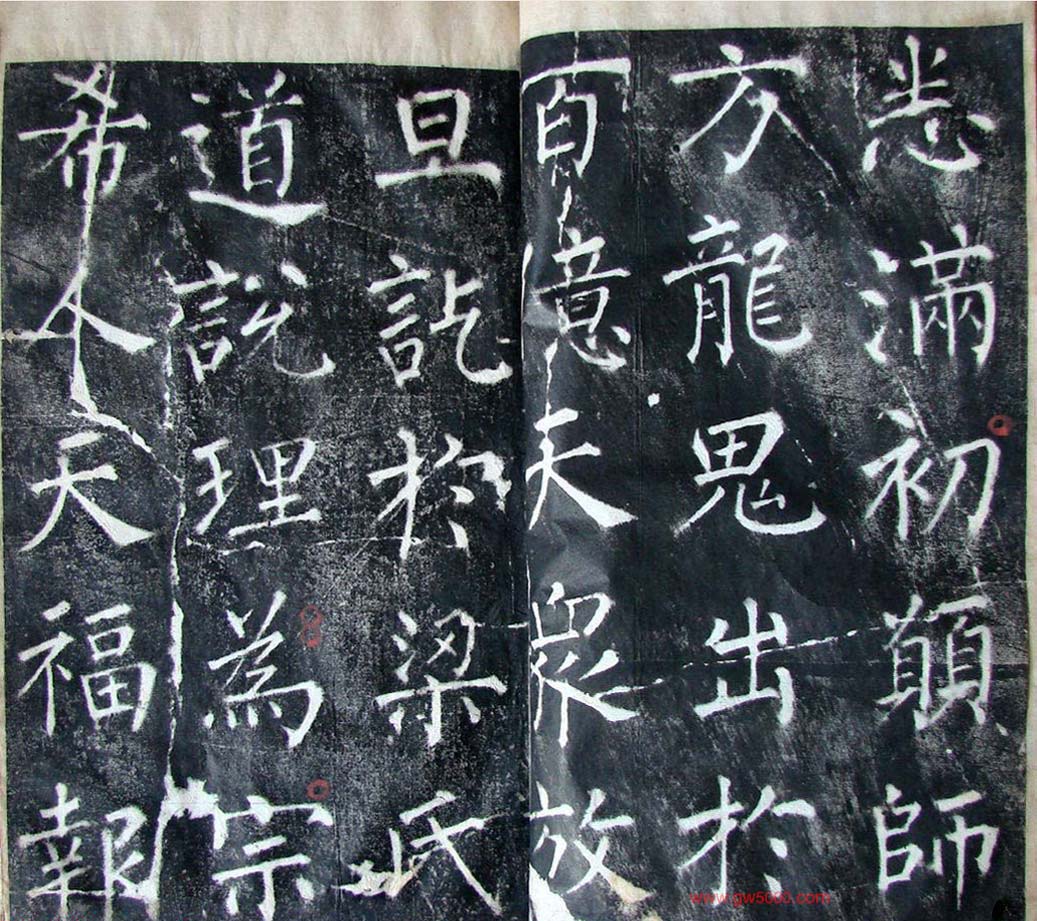 悉滿初願師
方龍鬼出於
百億夫眾放
旦訖於梁氏
道說理為宗
希人天福報
www.gw5000.com